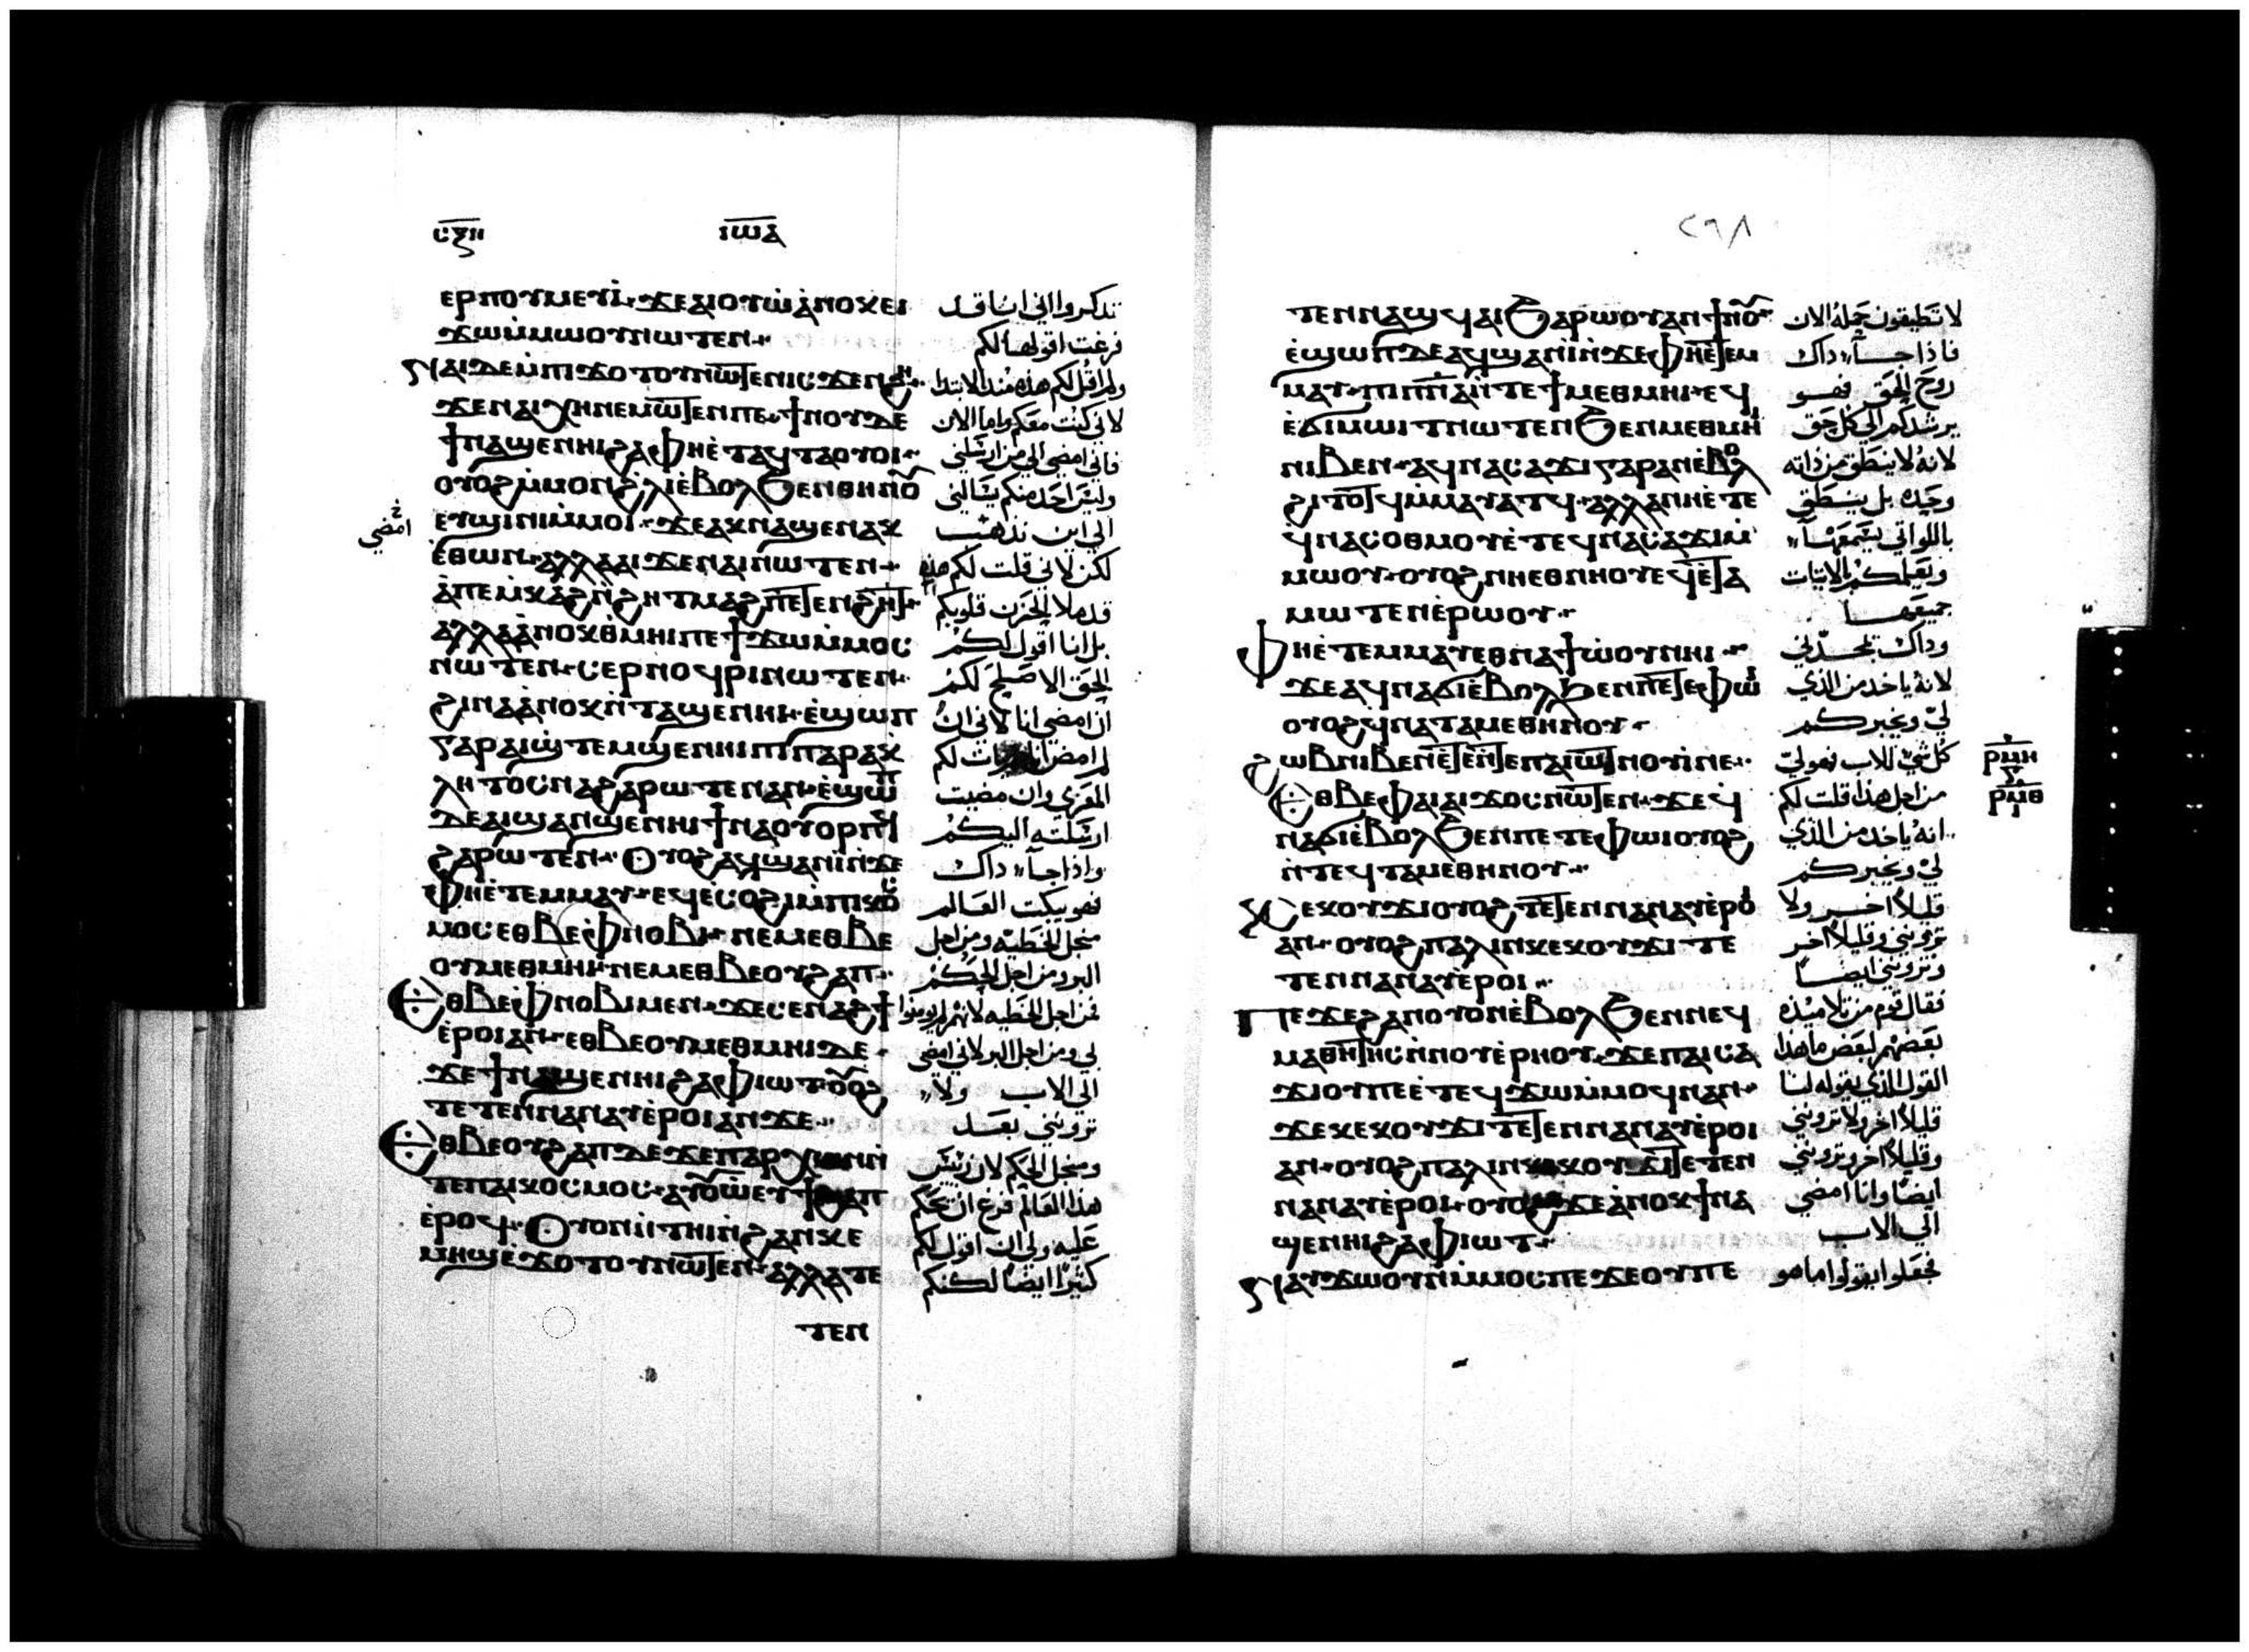 ⲥⲝⲏ
ⲓⲱⲁ
ⲉⲣⲡⲟⲩⲙⲉⲩⲓ̀ · ϫⲉ ⲁⲓⲟⲩⲱ̀ ⲁ̀ⲛⲟⲕ ⲉⲓ
ϫⲱ ⲙ̀ⲙⲱⲟⲩ ⲛⲱⲧⲉⲛ ·
ⲛⲁⲓ ⲇⲉ ⲙ̀ⲡⲓϫⲟⲧⲟⲩ ⲛⲱⲧⲉⲛ ⲓⲥϫⲉⲛ ϩⲏ ·
ϫⲉ ⲛⲁⲓⲭⲏ ⲛⲉⲙⲱⲧⲉⲛ ⲡⲉ · ϯⲛⲟⲩ ⲇⲉ
ϯⲛⲁϣⲉⲛⲏⲓ ϩⲁ ⲫⲏ ⲉ̀ⲧⲁϥⲧⲁⲟⲩⲟⲓ ·
ⲟⲩⲟϩ ⲙ̀ⲙⲟⲛ ϩⲗⲓ ⲉ̀ⲃⲟⲗ ϧⲉⲛ ⲑⲏⲛⲟⲩ
ⲉⲧϣⲓⲛⲓ ⲙ̀ⲙⲟⲓ · ϫⲉ ⲁⲕⲛⲁϣⲉⲛⲁⲕ
ⲉ̀ⲑⲱⲛ · ⲁⲗⲗⲁ ⲁⲓϫⲉ ⲛⲁⲓ ⲛⲱⲧⲉⲛ ·
ⲁ̀ ⲡⲉⲙ̀ⲕⲁϩ ⲛ̀ϩⲏⲧ ⲙⲁϩ ⲡⲉⲧⲉⲛϩⲏⲧ ·
ⲁⲗⲗⲁ ⲁ̀ⲛⲟⲕ ⲑⲙⲏⲓ ⲡⲉ ϯϫⲱ ⲙ̀ⲙⲟⲥ
ⲛⲱⲧⲉⲛ · ⲥⲉⲣⲛⲟϥⲣⲓ ⲛⲱⲧⲉⲛ ·
ϩⲓⲛⲁ ⲁ̀ⲛⲟⲕ ⲛ̀ⲧⲁϣⲉⲛⲏⲓ · ⲉ̀ϣⲱⲡ
ⲅⲁⲣ ⲁⲓϣ̀ⲧⲉⲙϣⲉⲛⲏⲓ ⲡⲓⲡⲁⲣⲁⲕ
ⲗⲏⲧⲟⲥ ⲛⲁϩⲁⲣⲱⲧⲉⲛ ⲁⲛ · ⲉ̀ϣⲱⲡ
ⲇⲉ ⲁⲓϣⲁⲛϣⲉⲛⲏⲓ ϯⲛⲁⲟⲩⲟⲣⲡϥ
ϩⲁⲣⲱⲧⲉⲛ · ⲟⲩⲟϩ ⲁϥϣⲁⲛⲓ̀ ⲛ̀ϫⲉ
ⲫⲏ ⲉ̀ⲧⲉⲙⲙⲁⲩ · ⲉϥⲉ̀ⲥⲟϩⲓ ⲙ̀ⲡⲓⲕⲟⲥ
ⲙⲟⲥ ⲉⲑⲃⲉ ⲫⲛⲟⲃⲓ · ⲛⲉⲙ ⲉⲑⲃⲉ
ⲟⲩⲙⲉⲑⲙⲏⲓ · ⲛⲉⲙ ⲉⲑⲃⲉ ⲟⲩϩⲁⲡ ·
ⲉⲑⲃⲉ ⲫⲛⲟⲃⲓ ⲙⲉⲛ · ϫⲉ ⲥⲉⲛⲁϩϯ
ⲉ̀ⲣⲟⲓ ⲁⲛ · ⲉⲑⲃⲉ ⲟⲩⲙⲉⲑⲙⲏⲓ ⲇⲉ ·
ϫⲉ ϯⲛⲁϣⲉⲛⲏⲓ ϩⲁ ⲫⲓⲱⲧ ⲟⲩⲟϩ
ⲧⲉⲧⲉⲛⲛⲁⲛⲁⲩ ⲉ̀ⲣⲟⲓ ⲁⲛ ϫⲉ ·
ⲉⲑⲃⲉ ⲟⲩϩⲁⲡ ⲇⲉ ϫⲉ ⲡⲁⲣⲭⲱⲛ ⲛ̀
ⲧⲉ ⲡⲁⲓⲕⲟⲥⲙⲟⲥ · ⲁⲩⲟⲩⲱ ⲉⲩϯϩⲁⲡ
ⲉ̀ⲣⲟϥ · ⲟⲩⲟⲛ ⲛ̀ⲧⲏⲓ ⲛ̀ϩⲁⲛⲕⲉ
ⲙⲏϣ ⲉ̀ϫⲟⲧⲟⲩ ⲛⲱⲧⲉⲛ · ⲁⲗⲗⲁ ⲧⲉ
ⲧⲉⲛ
تذكروا اني انا قد
فرغت اقولها لكم
ولم اقل لكم هذه منذ الابتدا
لاني كنت معكم واما الان
فاني امضي الي من ارسلني
وليس احد منكم يسالني
الي اين تذهب
امضي
لكن لاني قلت لكم هذه
قد ملا الحزن قلوبكم
بل انا اقول لكم
الحق الاصلح لكم
ان امضي انا لاني ان
لم امض انا لم يات لكم
المعزي وان مضيت
ارسلته اليكم
واذا جآ داك
فهو يبكت العالم
منجل الخطيه ومن اجل
البر ومن اجل الحكم
فمن اجل الخطيه لانهم لم يومنوا
بي ومن اجل البر لاني امضي
الي الاب ولا
تروني بعد
ومنجل الحكم لان ريس
هذا العالم فرغ ان يحكم
عليه ولي ان اقول لكم
كثيرا ايضا لكنكم
٢٦٨
ⲧⲉⲛⲛⲁϣϥⲁⲓ ϧⲁⲣⲱⲟⲩ ⲁⲛ ϯⲛⲟⲩ ·
ⲉ̀ϣⲱⲡ ⲇⲉ ⲁϥϣⲁⲛⲓ̀ ⲛ̀ϫⲉ ⲫⲏ ⲉ̀ⲧⲉⲙ
ⲙⲁⲩ · ⲡⲓⲡⲛⲁ ⲛ̀ⲧⲉ ϯⲙⲉⲑⲙⲏⲓ · ⲉϥ
ⲉ̀ϭⲓⲙⲱⲓⲧ ⲛⲱⲧⲉⲛ ϧⲉⲛ ⲙⲉⲑⲙⲏⲓ
ⲛⲓⲃⲉⲛ · ⲁϥⲛⲁⲥⲁϫⲓ ⲅⲁⲣ ⲁⲛ ⲉ̀ⲃⲟⲗ
ϩⲓⲧⲟⲧϥ ⲙ̀ⲙⲁⲩⲁⲧϥ · ⲁⲗⲗⲁ ⲛⲏ ⲉ̀ⲧⲉ
ϥ̀ⲛⲁⲥⲟⲑⲙⲟⲩ ⲉ̀ⲧⲉϥⲛⲁⲥⲁϫⲓ ⲙ̀
ⲙⲱⲟⲩ · ⲟⲩⲟϩ ⲛⲏ ⲉⲑⲛⲏⲟⲩ ⲉϥⲉ̀ⲧⲁ
ⲙⲱⲧⲉⲛ ⲉ̀ⲣⲱⲟⲩ ·
ⲫⲏ ⲉ̀ⲧⲉⲙⲙⲁⲩ ⲉⲑⲛⲁϯⲱ̀ⲟⲩ ⲛⲏⲓ ·
ϫⲉ ⲁϥⲛⲁϭⲓ ⲉ̀ⲃⲟⲗ ϧⲉⲛ ⲡⲉⲧⲉ ⲫⲱⲓ
ⲟⲩⲟϩ ϥ̀ⲛⲁⲧⲁⲙⲉ ⲑⲏⲛⲟⲩ ·
ϩⲱⲃ ⲛⲓⲃⲉⲛ ⲉ̀ⲧⲉ ⲛ̀ⲧⲉ ⲡⲁⲓⲱⲧ ⲛⲟⲩⲓ̀ ⲛⲉ ·
ⲉⲑⲃⲉ ⲫⲁⲓ ⲁⲓϫⲟⲥ ⲛⲱⲧⲉⲛ · ϫⲉ ϥ̀
ⲛⲁϭⲓ ⲉ̀ⲃⲟⲗ ϧⲉⲛ ⲡⲉⲧⲉ ⲫⲱⲓ ⲟⲩⲟϩ
ⲛ̀ⲧⲉϥⲧⲁⲙⲉ ⲑⲏⲛⲟⲩ ·
ⲕⲉⲕⲟⲩϫⲓ ⲟⲩⲟϩ ⲧⲉⲧⲉⲛⲛⲁⲛⲁⲩ ⲉ̀ⲣⲟⲓ
ⲁⲛ · ⲟⲩⲟϩ ⲡⲁⲗⲓⲛ ⲕⲉⲕⲟⲩϫⲓ ⲧⲉ
ⲧⲉⲛⲛⲁⲛⲁⲩ ⲉ̀ⲣⲟⲓ ·
ⲡⲉϫⲉ ϩⲁⲛⲟⲩⲟⲛ ⲉ̀ⲃⲟⲗ ϧⲉⲛ ⲛⲉϥ
ⲙⲁⲑⲏⲧⲏⲥ ⲛ̀ⲛⲟⲩⲉ̀ⲣⲏⲟⲩ · ϫⲉ ⲡⲁⲓⲥⲁ
ϫⲓ ⲟⲩ ⲡⲉ ⲉ̀ⲧⲉϥϫⲱ ⲙ̀ⲙⲟϥ ⲛⲁⲛ ·
ϫⲉ ⲕⲉⲕⲟⲩϫⲓ ⲧⲉⲧⲉⲛⲛⲁⲛⲁⲩ ⲉ̀ⲣⲟⲓ
ⲁⲛ · ⲟⲩⲟϩ ⲡⲁⲗⲓⲛ ⲕⲉⲕⲟⲩϫⲓ ⲧⲉⲧⲉⲛ
ⲛⲁⲛⲁⲩ ⲉ̀ⲣⲟⲓ · ⲟⲩⲟϩ ϫⲉ ⲁ̀ⲛⲟⲕ ϯⲛⲁ
ϣⲉⲛⲏⲓ ϩⲁ ⲫⲓⲱⲧ ·
ⲛⲁⲩϫⲱ ⲟⲩⲛ ⲙ̀ⲙⲟⲥ ⲡⲉ ϫⲉ ⲟⲩ ⲡⲉ
لا تطيقون حمله الان
فاذا جآ داك
روح الحق فهو
يرشدكم الي كل حق
لانه لا ينطق من ذاته
وحده بل ينطق
باللواتي يسمعها
ويعلمكم بالاتيات
جميعها
وداك يمجدني
لانه ياخد من الذي
لي ويخبركم
كل شي للاب فهو لي
من اجل هذا قلت لكم
انه ياخد من الذي
لي ويخبركم
قليلا اخر ولا
تروني وقليلا اخر
وتروني ايضا
فقال قوم من تلاميده
بعضهم لبعض ما هذا
القول الذي يقوله لنا
قليلا اخر لا تروني
وقليلا اخر وتروني
ايضا وانا امضي
الي الاب
فجعلوا يقولوا ما هو
ⲣⲙⲏ
ⲣⲙⲑ